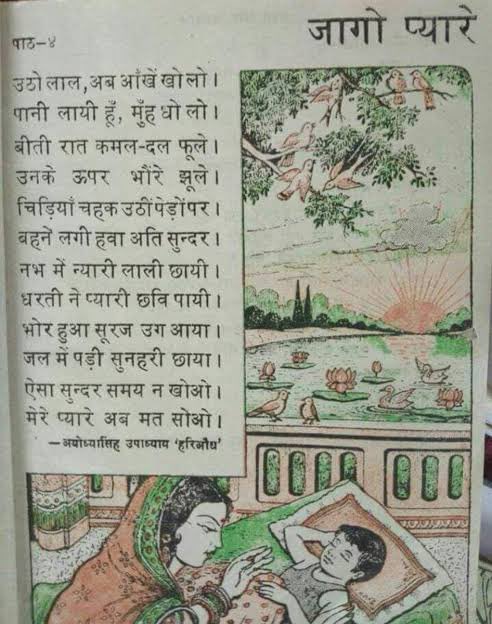 जागो प्यारे
पाठ-४
उठो लाल, अब आँखें खोलो।
पानी लायी हूँ, मुँह धो लो।
बीती रात कमल-दल फूले।
उनके ऊपर भौंरे झूले।
चिड़ियाँ चहक उठीं पेड़ों पर।
बहने लगी हवा अति सुन्दर।
नभ में न्यारी लाली छायी।
धरती ने प्यारी छवि पायी।
भोर हुआ सूरज उग आया।
जल में पड़ी सुनहरी छाया।
ऐसा सुन्दर समय न खोओ।
मेरे प्यारे अब मत सोओ।
—अयोध्यासिंह उपाध्याय 'हरिऔध'